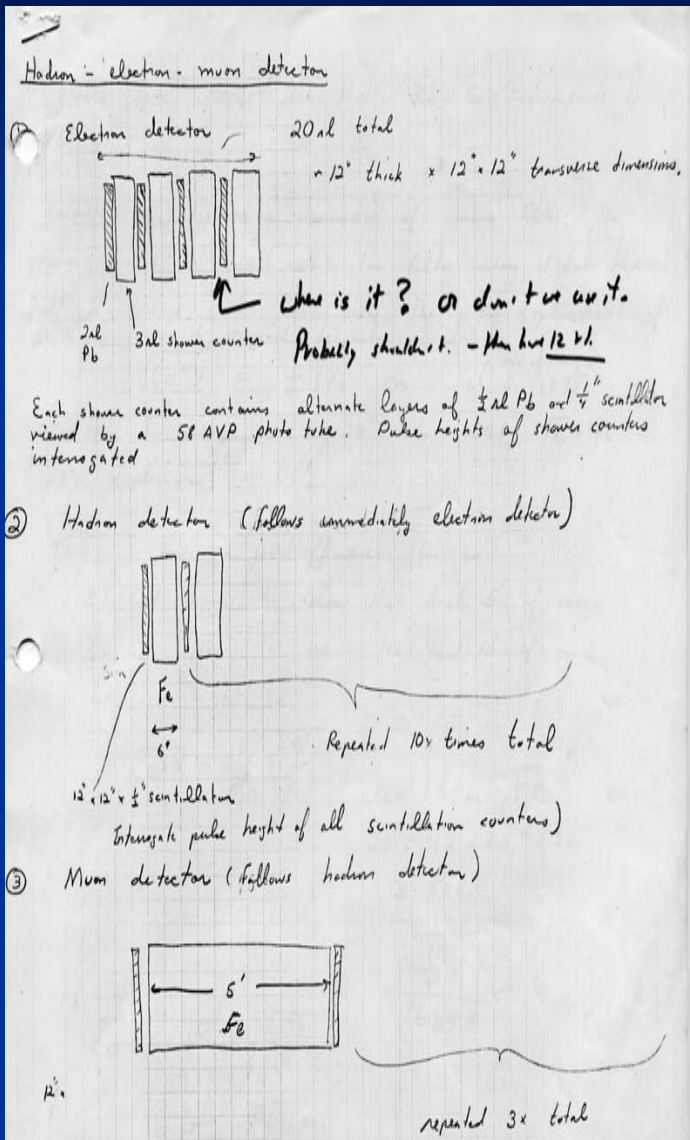 Hadron - electron - muon detector
① Electron detector 20 rl total
~ 12" thick × 12" × 12" transverse dimensions.
where is it? or don't we use it.
2rl
Pb
3rl shower counter
Probably shouldn't. - then have 12 rl.
Each shower counter contains alternate layers of ½ rl Pb and ¼" scintillator
viewed by a 58 AVP photo tube. Pulse heights of shower counters
interrogated
② Hadron detector (follows immediately electron detector)
Fe
6"
Repeated 10x times total
12" × 12" × scintillator
Interrogate pulse height of all scintillation counters)
③ Muon detector (follows hadron detector)
5'
Fe
12" ×
repeated 3x total